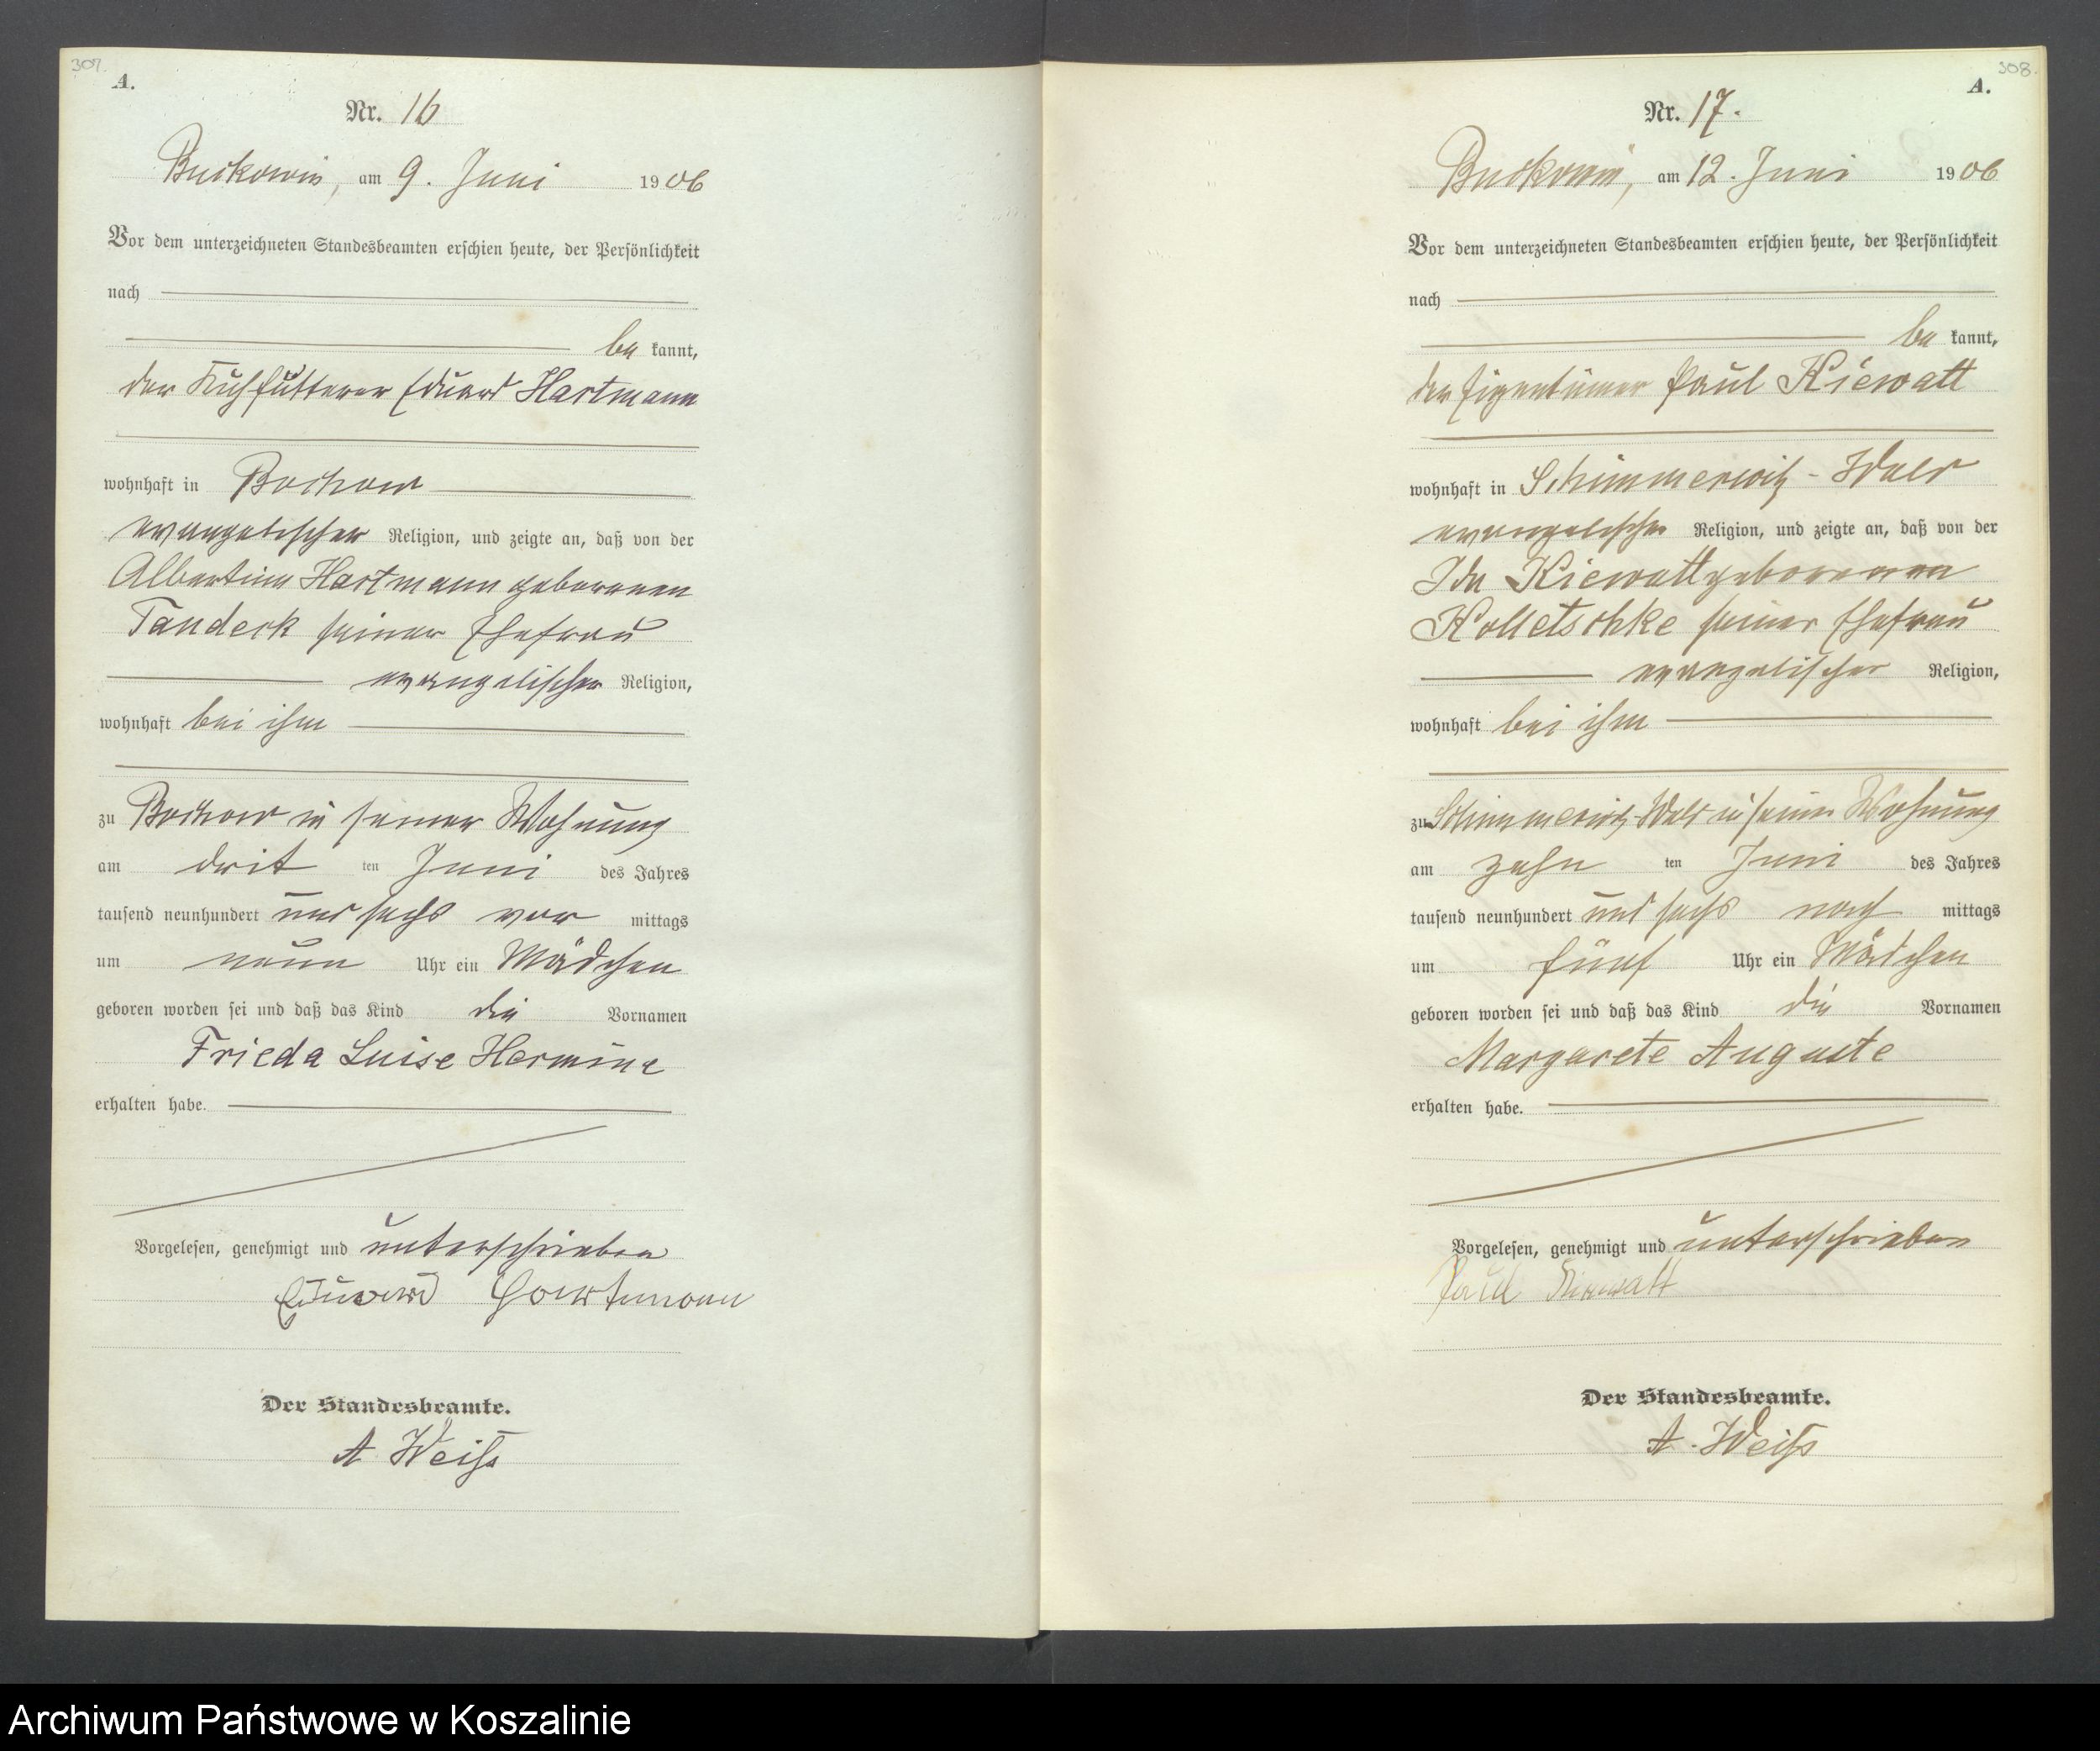 307.
A.
Nr. 16
Buckowin, am 9. Juni 1906
Vor dem unterzeichneten Standesbeamten erschien heute, der Persönlichkeit
nach
be kannt,
der Kuhfütterer Eduard Hartmann
wohnhaft in Bochow
evangelischer Religion, und zeigte an, daß von der
Albertine Hartmann geborenen
Tandeck seiner Ehefrau
evangelischer Religion,
wohnhaft bei ihm
zu Bochow in seiner Wohnung
am drit ten Juni des Jahres
tausend neunhundert und sechs vor mittags
um neun Uhr ein Mädchen
geboren worden sei und daß das Kind die Vornamen
Frieda Luise Hermine
erhalten habe.
Vorgelesen, genehmigt und unterschrieben
Eduard Hartmann
Der Standesbeamte.
A Weiss
308.
A.
Nr. 17.
Buckowin, am 12. Juni 1906
Vor dem unterzeichneten Standesbeamten erschien heute, der Persönlichkeit
nach
be kannt,
der Eigentümer Paul Kiewatt
wohnhaft in Schimmerwitz-Wald
evangelischer Religion, und zeigte an, daß von der
Ida Kiewatt geborenen
Kolletschke seiner Ehefrau
evangelischer Religion,
wohnhaft bei ihm
zu Schimmerwitz-Wald in seiner Wohnung
am zehn ten Juni des Jahres
tausend neunhundert und sechs nach mittags
um fünf Uhr ein Mädchen
geboren worden sei und daß das Kind die Vornamen
Margarete Auguste
erhalten habe.
Vorgelesen, genehmigt und unterschrieben
Paul Kiewatt
Der Standesbeamte.
A. Weiss
Archiwum Państwowe w Koszalinie